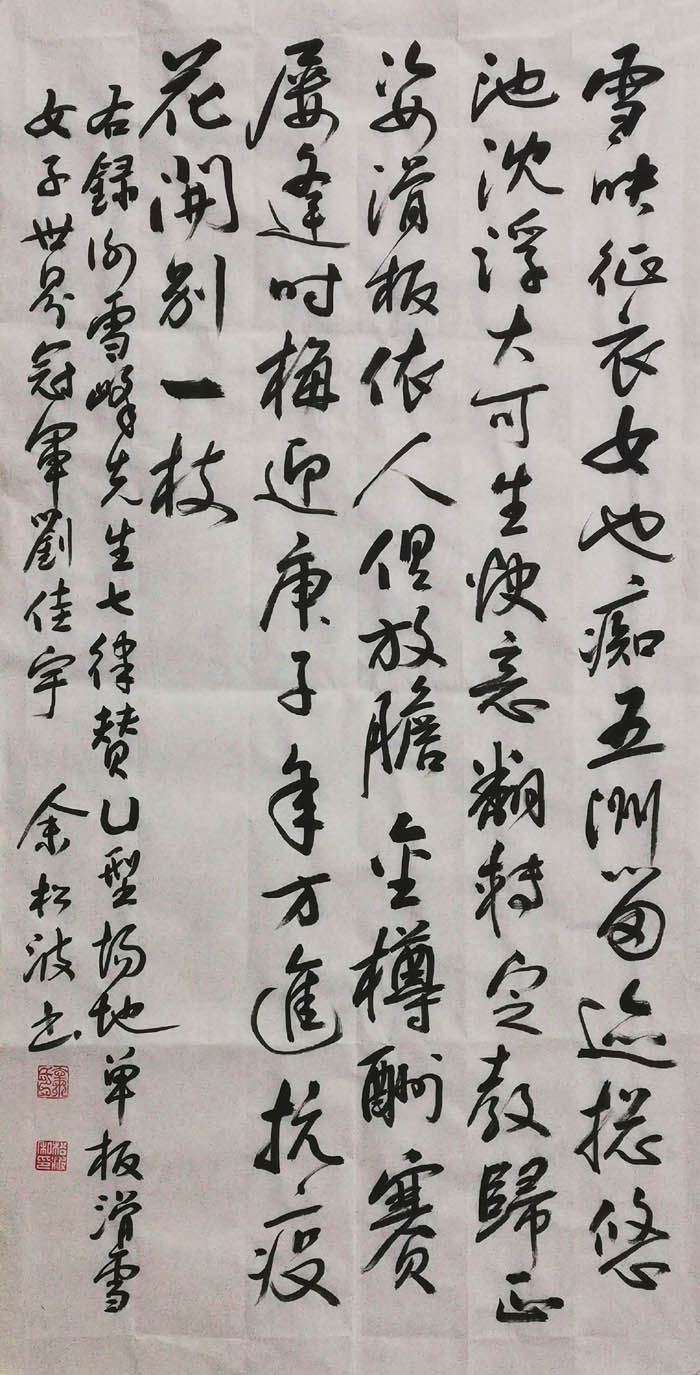 雪映征衣女也痴五洲留迹揽悠
池沈浮大可生快意翻转定教歸正
姿滑板依人但放膽金樽酬賽
屡逢时梅迎庚子年方進抗疫
花開别一枝
右録徐雪峰先生七律赞U型场地单板滑雪
女子世界冠軍劉佳宇 余松波书